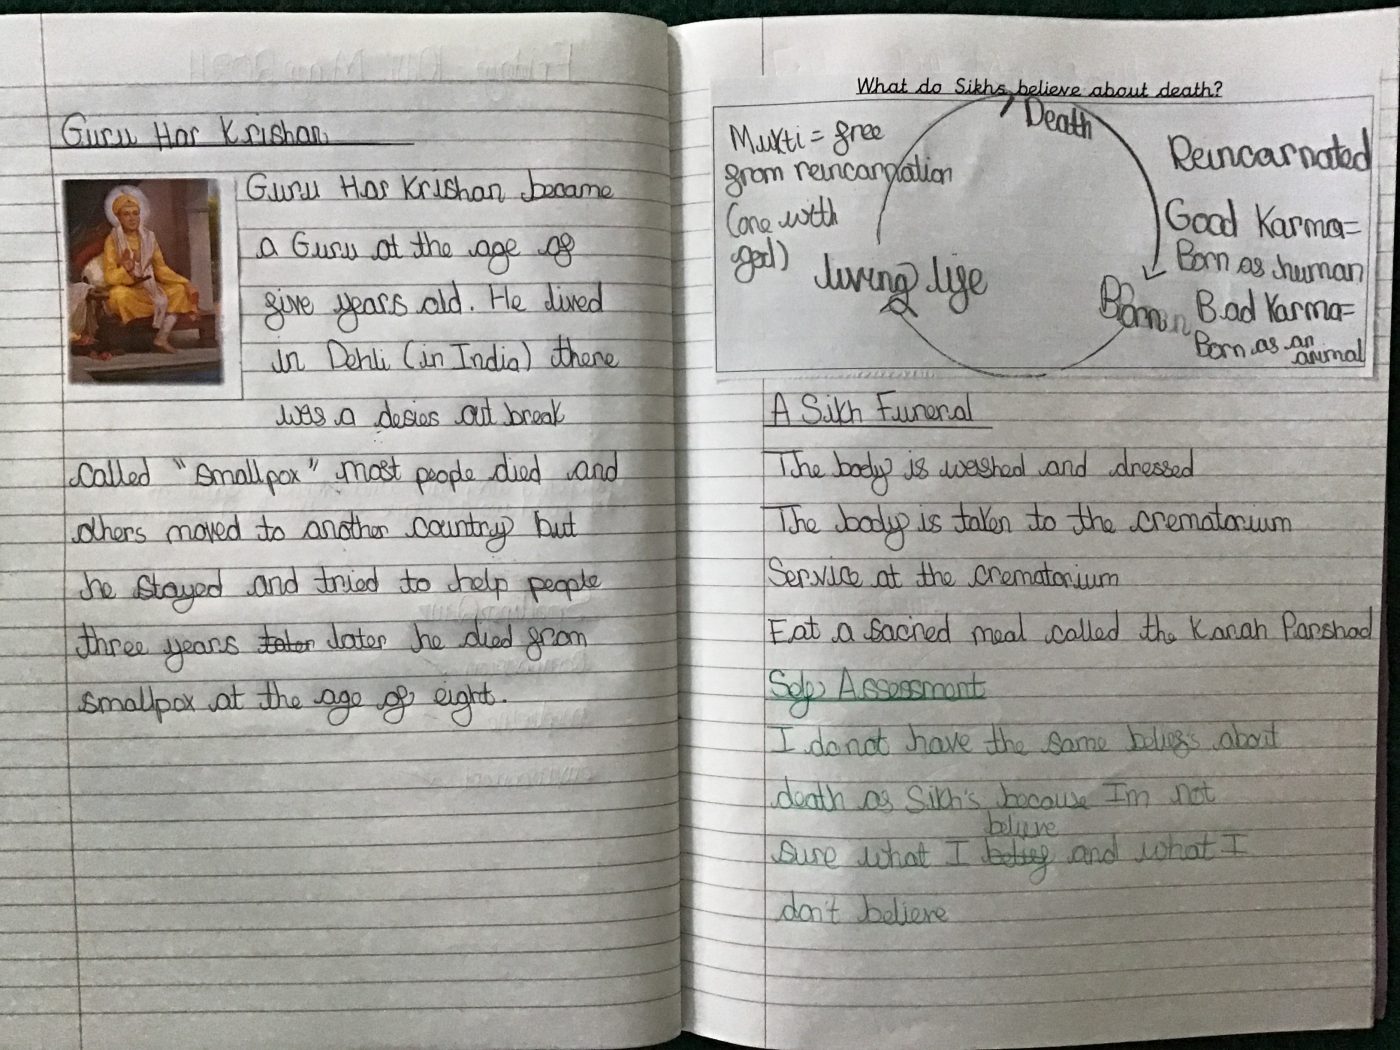 Guru Har Krishan
Guru Har Krishan became
a Guru at the age of
five years old. He lived
in Dehli (in India) there
was a desies out break
called "smallpox" most people died and
others moved to another country but
he stayed and tried to help people
three years later he died from
smallpox at the age of eight.
What do Sikhs believe about death?
Death
Mukti = free
from reincarnation
(one with
god)
living life
Born
Reincarnated
Good Karma=
Born as human
Bad Karma=
Born as an
animal
A Sikh Funeral
The body is washed and dressed
The body is taken to the crematorium
Service at the crematorium
Eat a sacred meal called the Karah Parshad
Self Assessment
I do not have the same beliefs about
death as Sikh's because I'm not
believe
sure what I belief and what I
don't believe